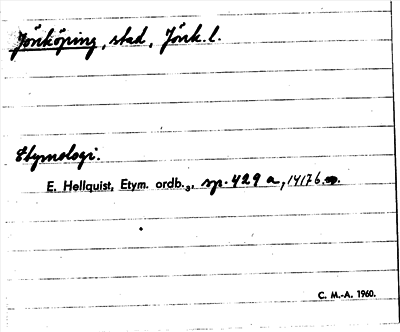 Jönköping, stad, Jönk. l.
Etymologi.
E. Hellquist, Etym. ordb.₃, sp. 429 a,
C. M.-A. 1960.